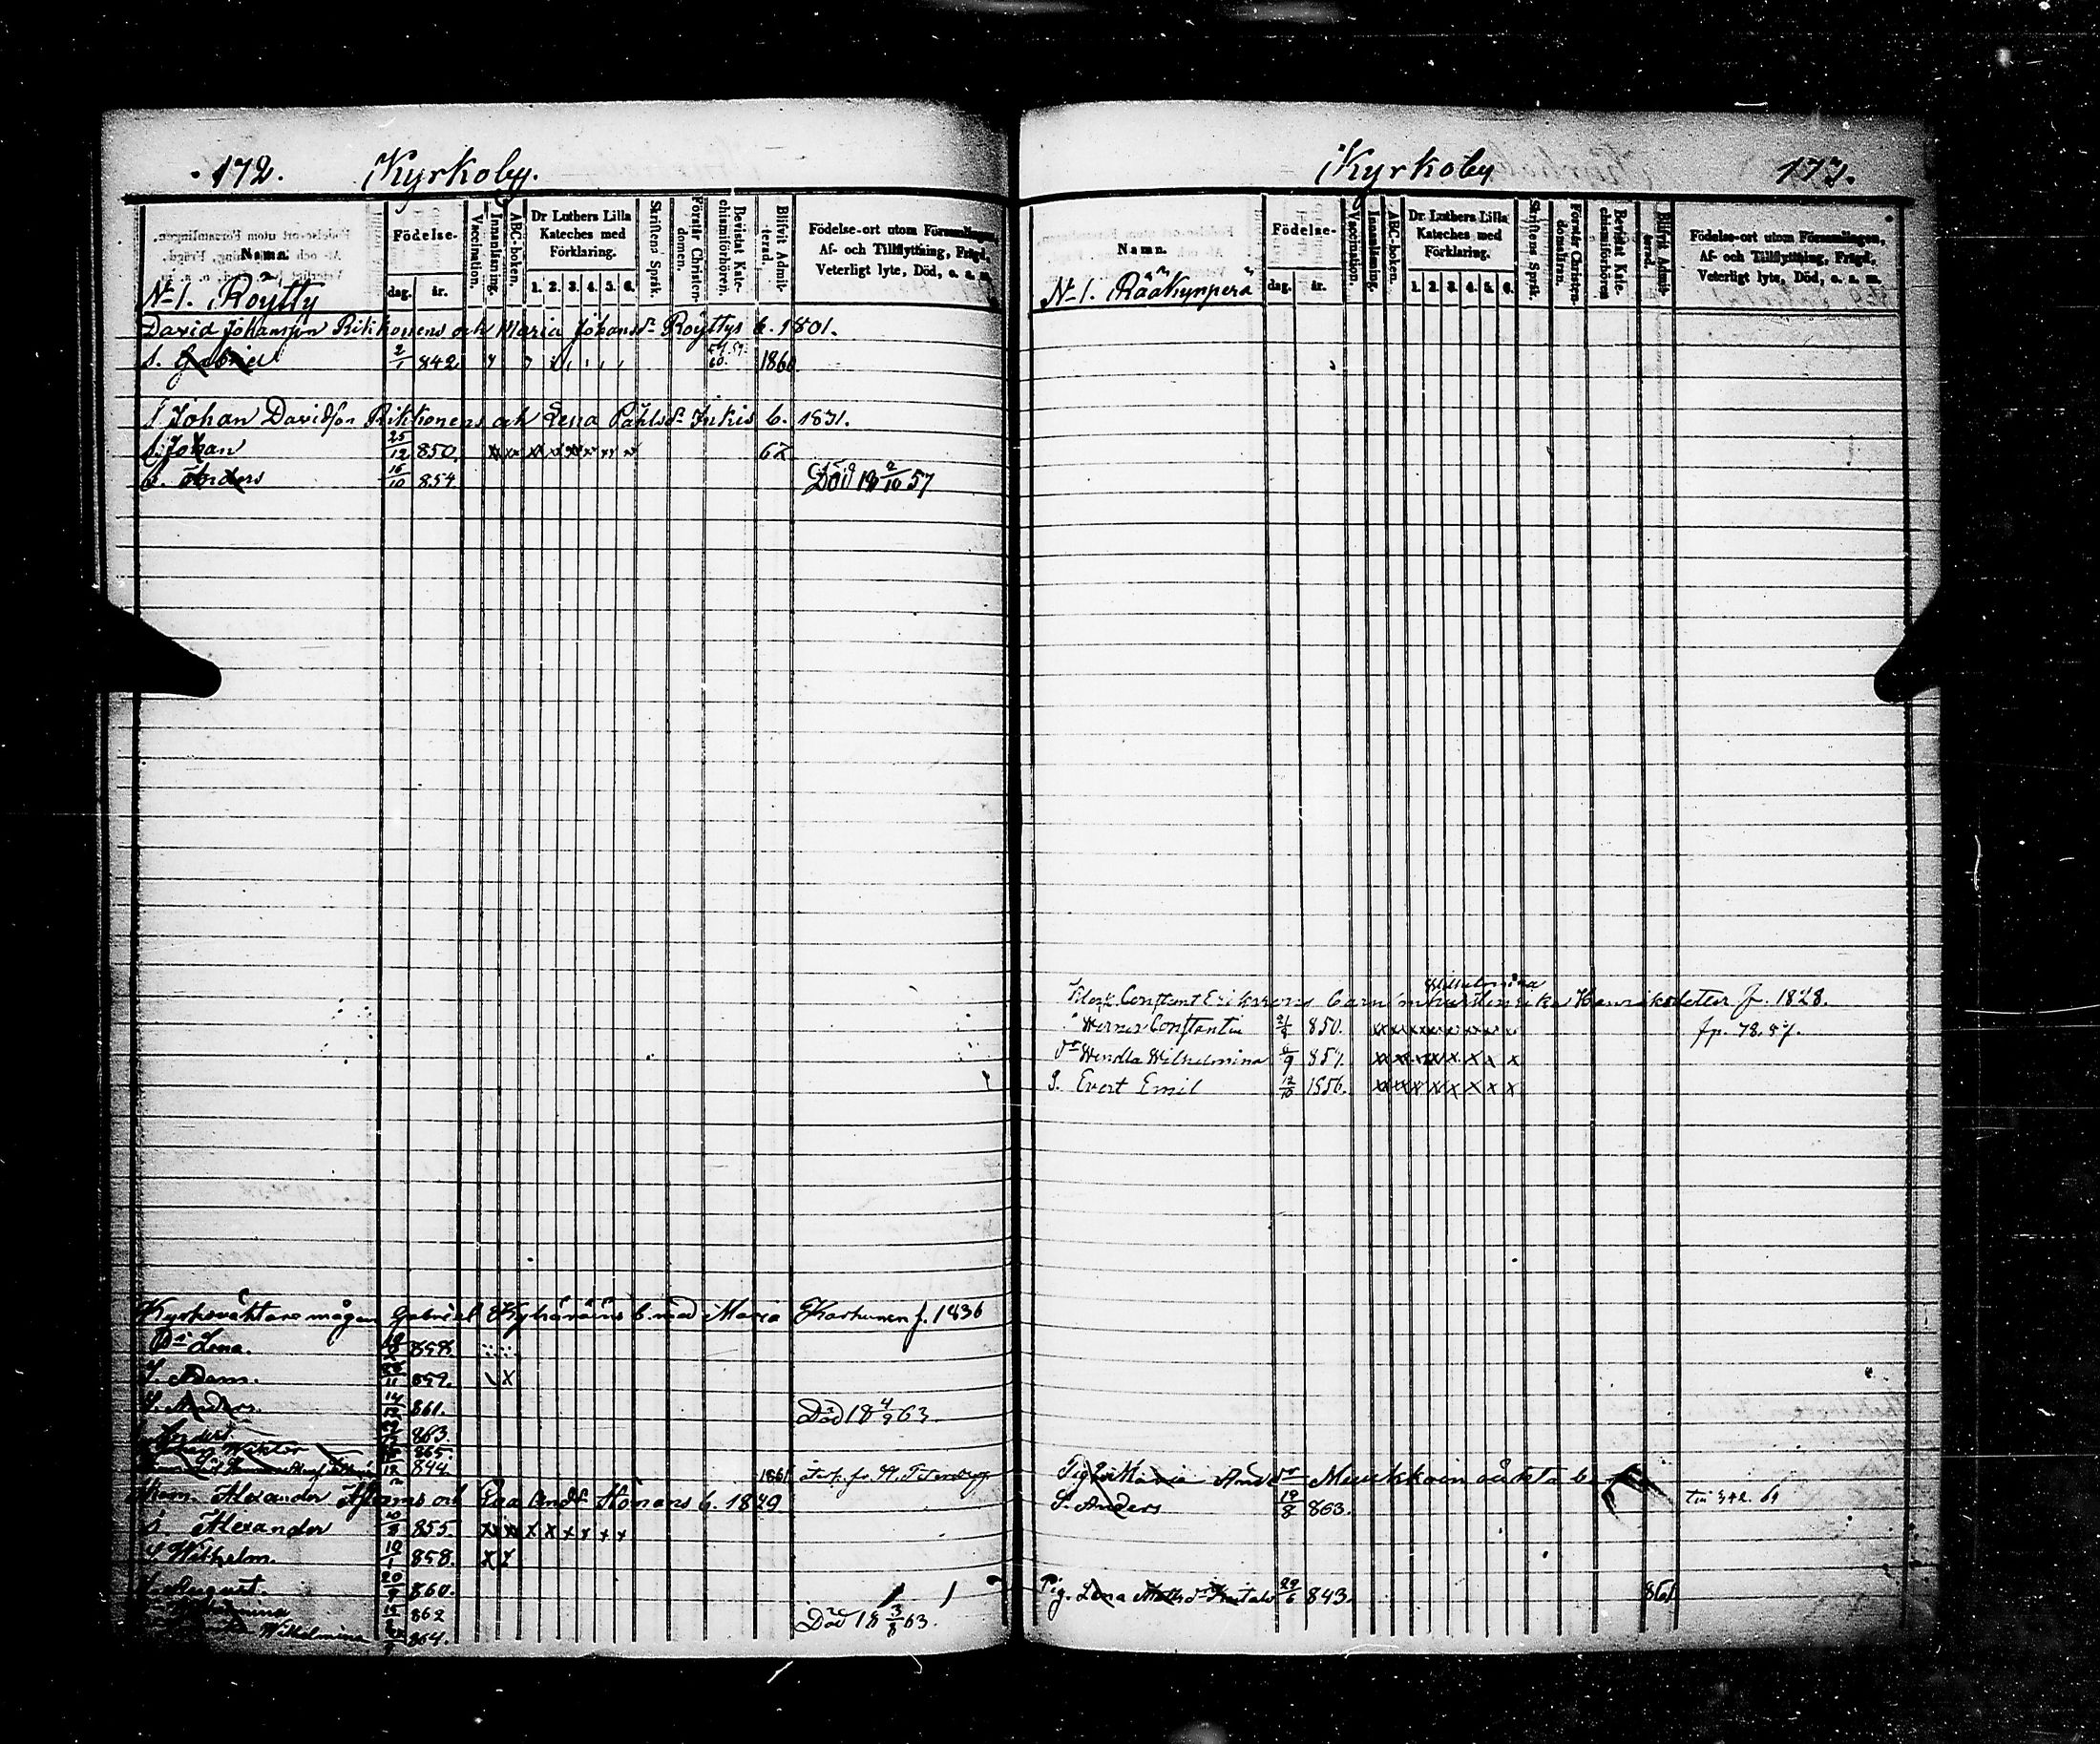 172. Kyrkoby.
Namn.
Födelse-
dag. år.
Vaccination.
Innanläsning.
ABC-boken.
Dr Luthers Lilla Kateches med Förklaring.
1. 2. 3. 4. 5. 6.
Skriftens Språk.
Förstår Christendomen.
Bevistat Katechismiförhören.
Blifvit Admitterad.
Födelse-ort utom Församlingen,
Af- och Tillflyttning, Frägd,
Veterligt lyte, Död, o. s. m.
N-1. Röytty
David Johansson Rikkonens och Maria Johansdr Röyttys b. 1801.
S. Gabriel 2/1 842 60. 1860
Johan Davidson Rikkonens och Lena Påhlsdr Inkis b. 1831.
S. Johan 25/12 850. 67
S. Anders 16/10 854. Död 18 2/10 57
Kyrkoväktare mågen Gabriel b. med Maria Karhunen f. 1836
Dr Lena. 858.
S. Adam. 11 859. X
S. Anders. 14/12 861. Död 18 4/9 63.
863.
Wiktor 865
844. 1861 St. Petersburg
Alexander och Eva Andsdr b. 1849
S. Alexander 855. x x x x x x x x
S. Wilhelm. 19/1 858. X
S. August. 20/9 860.
862 Död 18 3/8 63.
Wilhelmina 864.
Kyrkoby 173.
Namn.
Födelse-
dag. år.
Vaccination.
Innanläsning.
ABC-boken.
Dr Luthers Lilla Kateches med Förklaring.
1. 2. 3. 4. 5. 6.
Skriftens Språk.
Förstår Christendomsläran.
Bevistat Katechismiförhören
Blifvit Admitterad.
Födelse-ort utom Församlingen,
Af- och Tillflyttning, Frägd,
Veterligt lyte, Död, o. s. m.
N-1. Rääkynperä
Wilhelmina
Constant Erikssons barn Henriksdotter f. 1828.
S. Werner Constantin 21/8 850. x x x x x x x x fp. 78. 57.
Dr Wendla Wilhelmina 9 854. x x x x x x x x
S. Evert Emil 12/10 1856. x x x x x x x x
Pig. Maria Andsdr Muukkoin oäkta b.
S. Anders 19/8 863. till 342. 64
Pig. Lena Mattsdr 29/6 843. 861